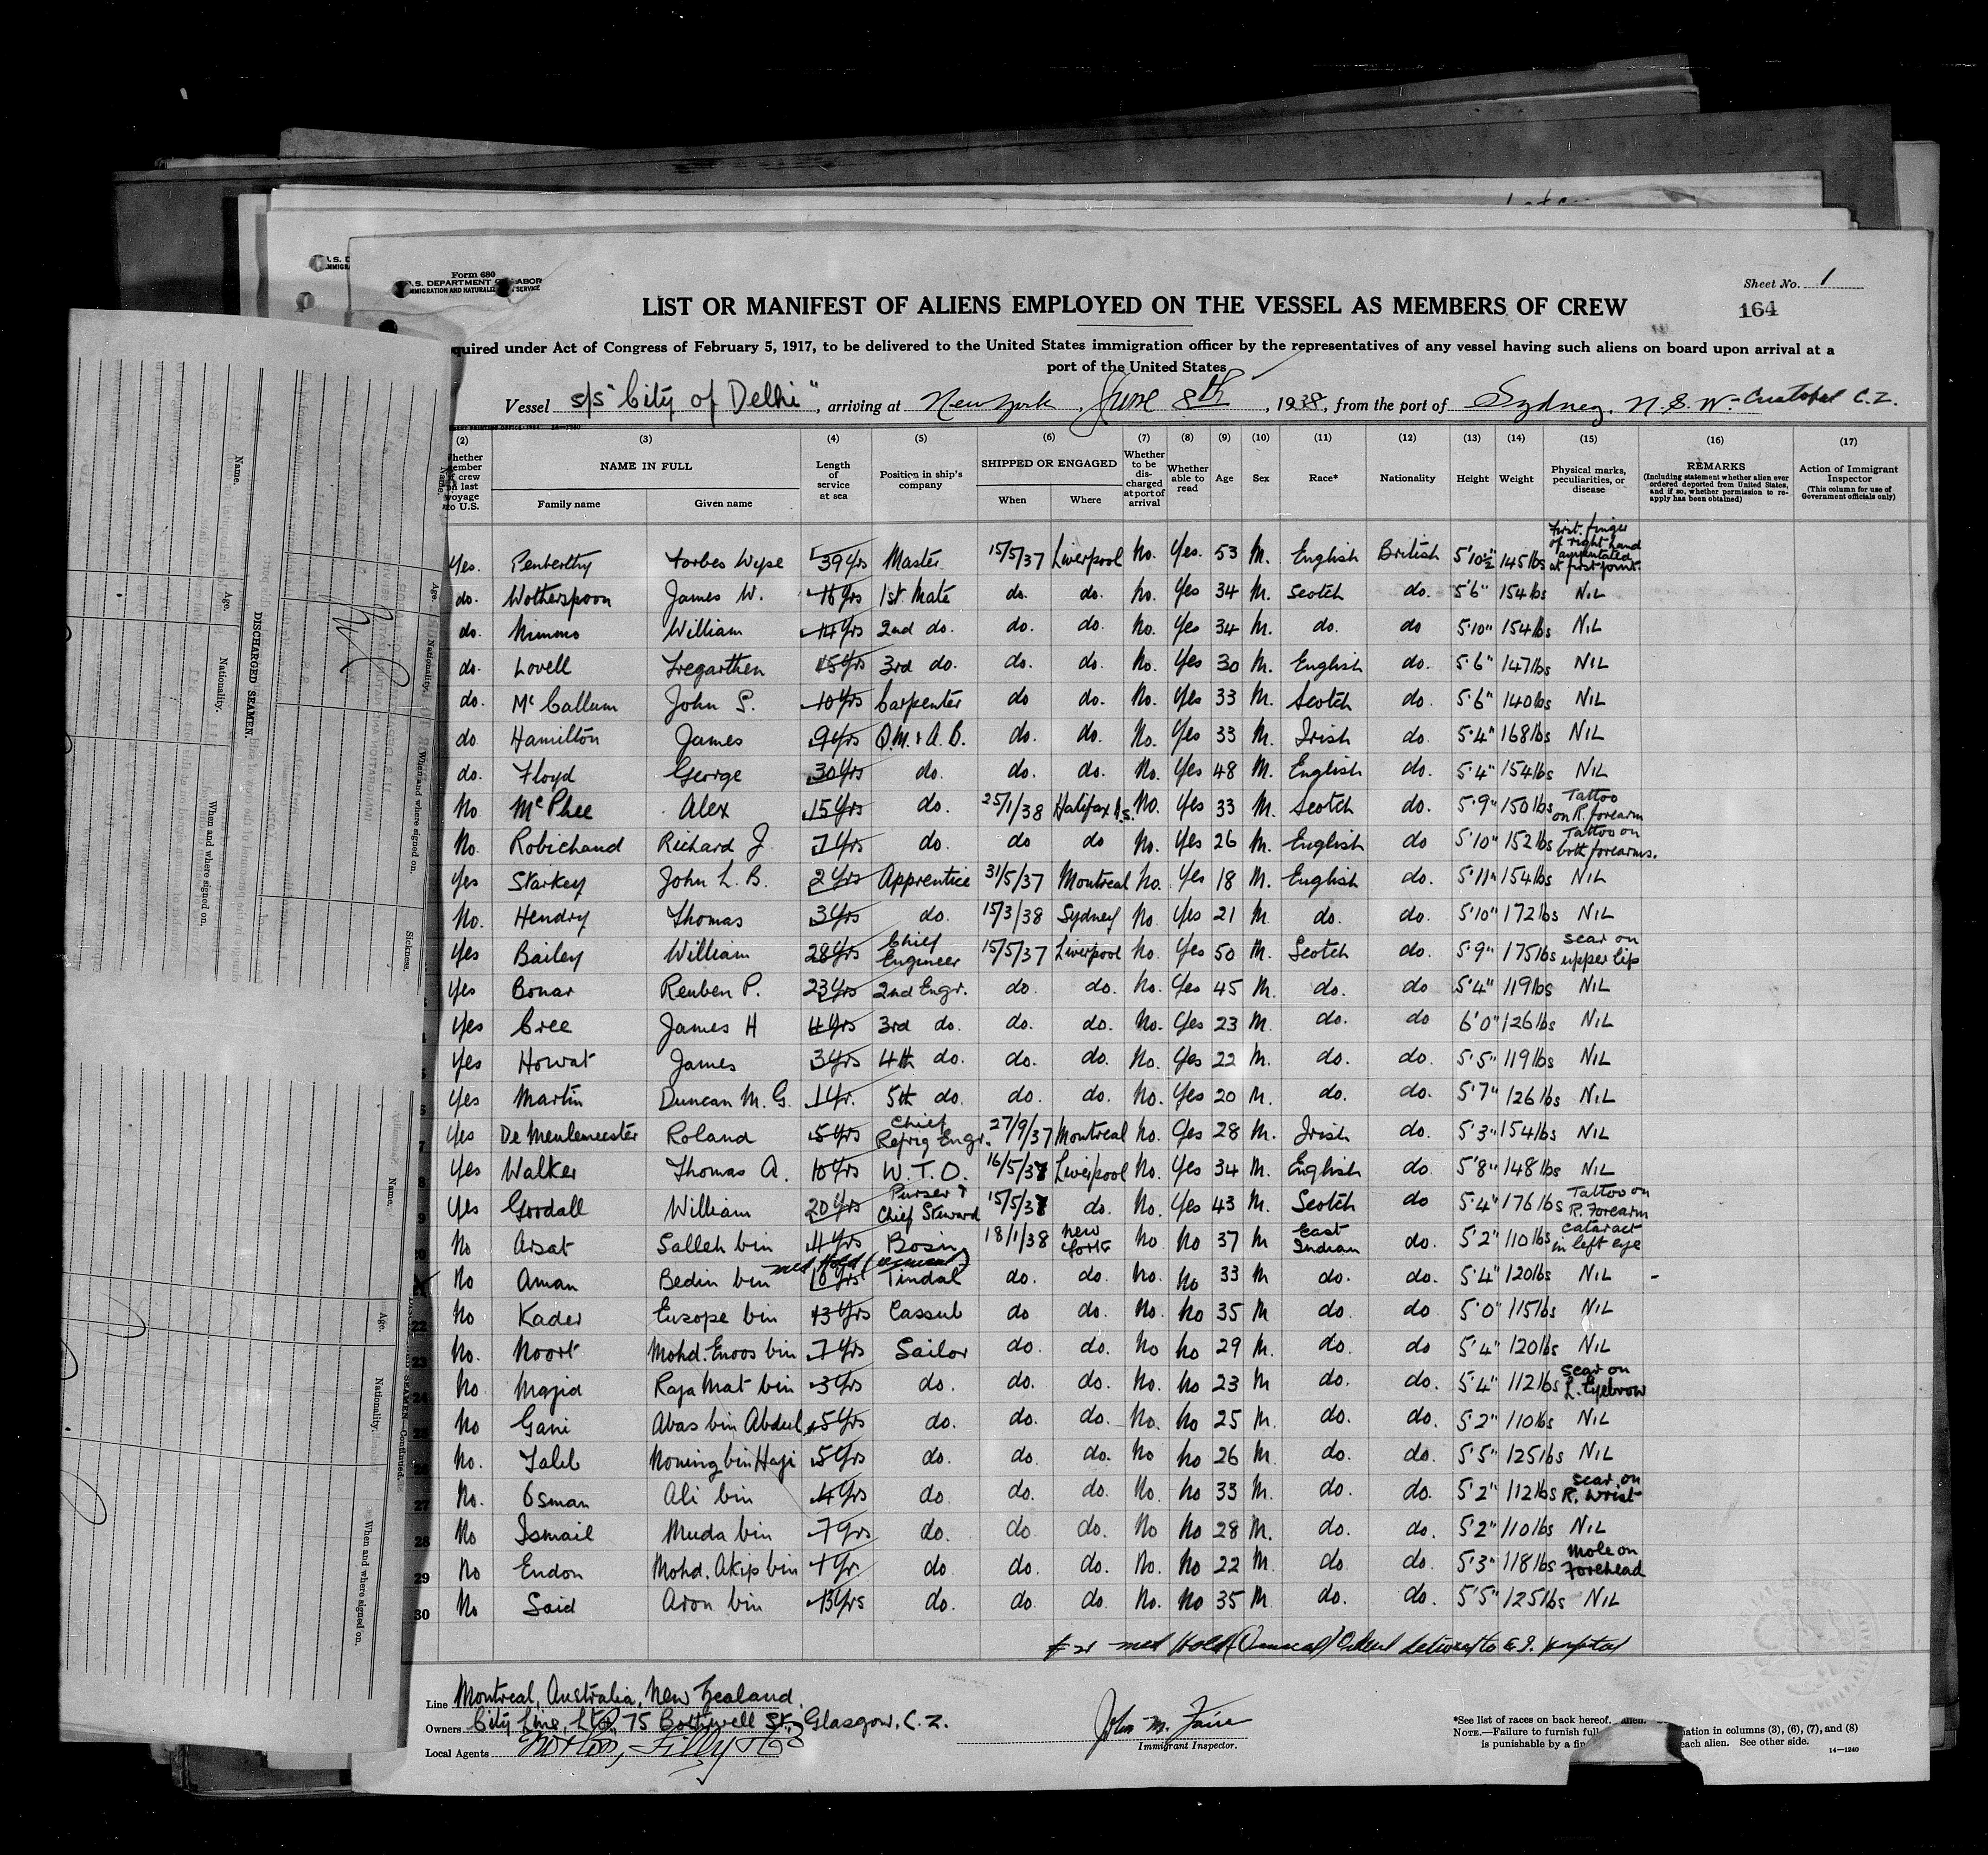 Form 680
IMMIGRATION AND
Sheet No. 1
LIST OR MANIFEST OF ALIENS EMPLOYED ON THE VESSEL AS MEMBERS OF CREW
164
quired under Act of Congress of February 5, 1917, to be delivered to the United States immigration officer by the representatives of any vessel having such aliens on board upon arrival at a
port of the United States
Vessel s/s "City of Delhi", arriving at New York, June 8th, 1938, from the port of Sydney, N.S.W. - Cristobal C.Z.
(2) (3) (4) (5) (6) (7) (8) (9) (10) (11) (12) (13) (14) (15) (16) (17)
NAME IN FULL Length of service at sea Position in ship's company SHIPPED OR ENGAGED Whether to be discharged at port of arrival Whether able to read Age Sex Race* Nationality Height Weight Physical marks, peculiarities, or disease REMARKS (Including statement whether alien ever ordered deported from United States, and if so, whether permission to reapply has been obtained) Action of Immigrant Inspector (This column for use of Government officials only)
Family name Given name When Where
Yes. Penberthy Forbes Wyse 39 Yrs Master 15/5/37 Liverpool No. Yes. 53 M. English British 5'10½" 145 lbs First finger of right hand amputated at first joint.
do. Wotherspoon James W. 16 Yrs 1st Mate do. do. No. Yes 34 M. Scotch do. 5'6" 154 lbs NIL
do. Nimmo William 14 Yrs 2nd do. do. do. No. Yes 34 M. do. do 5'10" 154 lbs NIL
do. Lovell Tregarthen 15 Yrs 3rd do. do. do. No. Yes 30 M. English do. 5'6" 147 lbs NIL
do. McCallum John S. 10 Yrs Carpenter do do. No. Yes 33 M. Scotch do. 5'6" 140 lbs NIL
do Hamilton James 9 Yrs Q.M. & A.B. do. do. No. Yes 33 M. Irish do 5'4" 168 lbs NIL
do. Floyd George 30 Yrs do. do. do. No. Yes 48 M. English do. 5'4" 154 lbs NIL
No McPhee Alex 15 Yrs do. 25/1/38 Halifax N.S. No. Yes 33 M. Scotch do. 5'9" 150 lbs Tattoo on R. forearm
No. Robichaud Richard J. 7 Yrs do. do do No. Yes 26 M. English do 5'10" 152 lbs Tattoo on both forearms.
Yes Starkey John L. B. 2 Yrs Apprentice 31/5/37 Montreal No. Yes 18 M. English do. 5'11" 154 lbs NIL
No. Hendry Thomas 3 Yrs do. 15/3/38 Sydney No. Yes 21 M. do. do. 5'10" 172 lbs NIL
Yes Bailey William 28 Yrs Chief Engineer 15/5/37 Liverpool No. Yes 50 M. Scotch do. 5'9" 175 lbs scar on upper lip
Yes Bonar Reuben P. 23 Yrs 2nd Engr. do. do. No. Yes 45 M. do. do 5'4" 119 lbs NIL
Yes Cree James H 4 Yrs 3rd do. do. do. No. Yes 23 M. do. do 6'0" 126 lbs NIL
Yes Howat James 3 Yrs 4th do. do. do. No. Yes 22 M. do. do. 5'5" 119 lbs NIL
Yes Martin Duncan M. G. 1 Yr. 5th do. do. do. No. Yes 20 M. do. do. 5'7" 126 lbs NIL
Yes De Meulemeester Roland 5 Yrs Chief Refrig Engr. 27/9/37 Montreal No. Yes 28 M. Irish do. 5'3" 154 lbs NIL
Yes Walker Thomas A. 10 Yrs W.T.O. 16/5/37 Liverpool No. Yes 34 M. English do 5'8" 148 lbs NIL
Yes Goodall William 20 Yrs Purser & Chief Steward 15/5/37 do. No. Yes 43 M. Scotch do 5'4" 176 lbs Tattoo on R. Forearm
No Arsat Salleh bin 4 Yrs Bosin 18/1/38 New York No No 37 M East Indian do. 5'2" 110 lbs cataract in left eye
med Hold
No Aman Bedin bin 10 Yrs Tindal do. do. No. No 33 M do. do. 5'4" 120 lbs NIL -
22 No Kader Eusope bin 13 Yrs Cassub do do. No. No 35 M do. do 5'0" 115 lbs NIL
23 No. Noort Mohd. Enoos bin 7 Yrs Sailor do. do. No No 29 M. do. do 5'4" 120 lbs NIL
24 No Majid Raja Mat bin 3 Yrs do. do. do. No. No 23 M do. do. 5'4" 112 lbs Scar on L. Eyebrow
25 No Gani Abas bin Abdul 5 Yrs do. do. do. No. No 25 M. do. do. 5'2" 110 lbs NIL
26 No. Talib Noning bin Haji 5 Yrs do. do. do. No No 26 M. do. do. 5'5" 125 lbs NIL
27 No. Osman Ali bin 4 Yrs do do. do. No. No 33 M. do. do. 5'2" 112 lbs scar on R. wrist
28 No Ismail Muda bin 7 Yrs do. do do. No No 28 M. do. do. 5'2" 110 lbs NIL
29 No Endon Mohd. Akip bin 1 Yr. do. do. do. No. No 22 M. do. do. 5'3" 118 lbs Mole on Forehead
30 No Said Aron bin 13 Yrs do. do. do. No. No 35 M. do. do. 5'5" 125 lbs NIL
# 21 med Hold to E.I. Hospital
Line Montreal, Australia, New Zealand.
Owners City Line, Ltd, 75 Bothwell St., Glasgow, C.2.
Local Agents Norton, Lilly & Co
John M.
Immigrant Inspector.
*See list of races on back hereof.
NOTE.—Failure to furnish full ation in columns (3), (6), (7), and (8)
is punishable by a fin each alien. See other side.
14—1240
DISCHARGED SEAMEN.
Name.
Age.
Nationality.
When and where signed on.
Sickness.